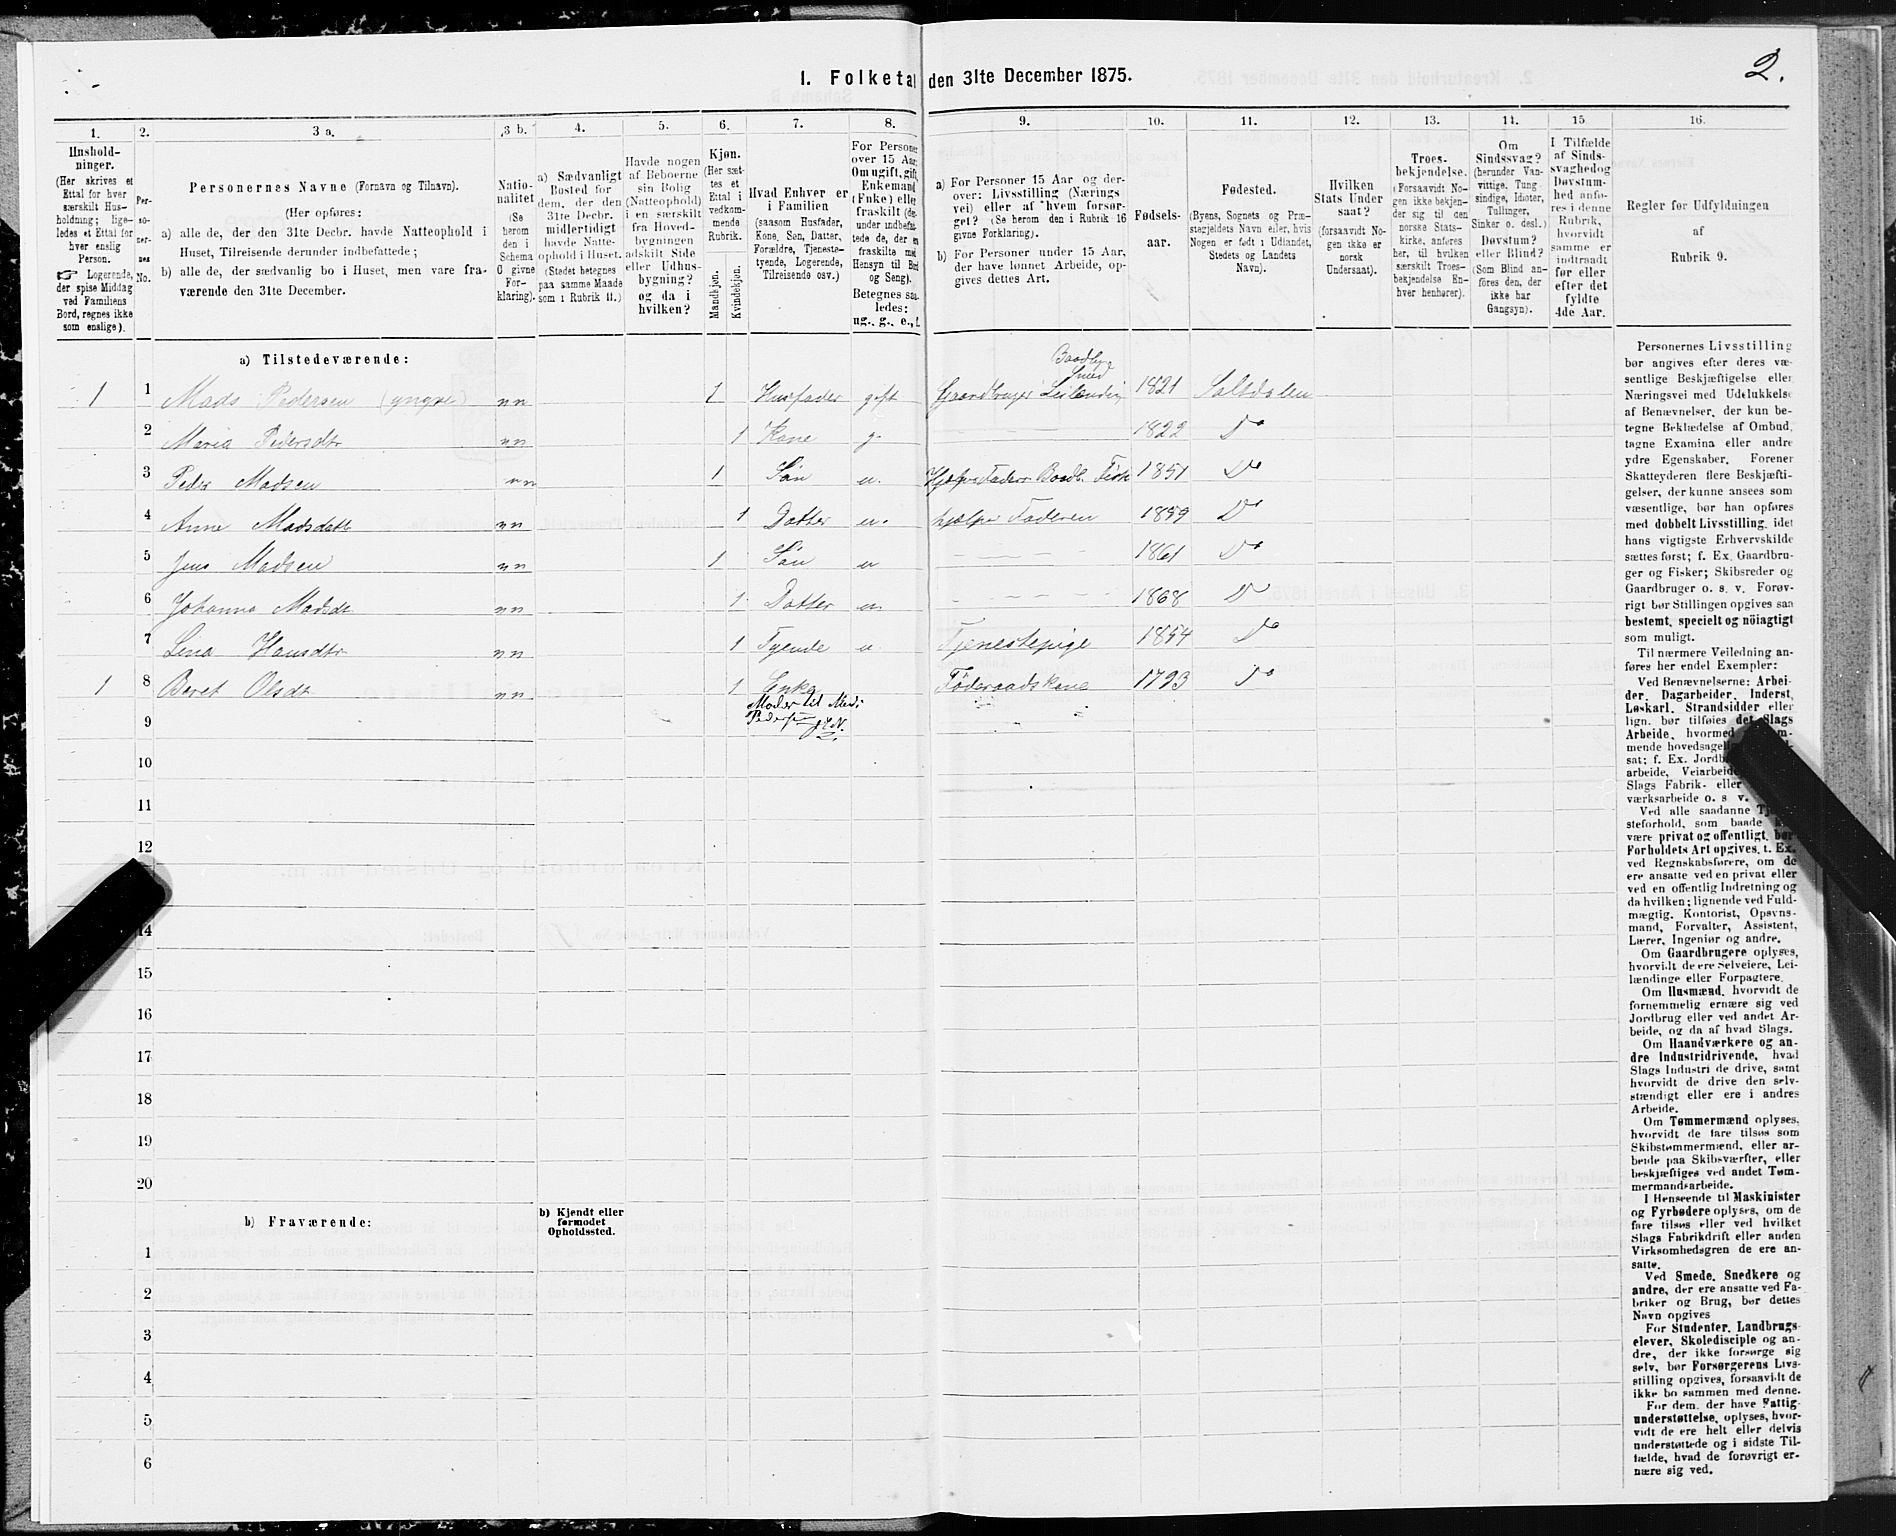 1. Folketal den 31te December 1875.
2.
1.
Husholdninger.
(Her skrives et
Ettal for hver
særskilt Husholdning;
ligeledes et Ettal for
hver enslig
Person.
☞ Logerende,
der spise Middag
ved Familiens
Bord, regnes ikke
som enslige).
2.
Personernes
No.
3 a.
Personernes Navne (Fornavn og Tilnavn).
(Her opføres:
a) alle de, der den 31te Decbr. havde Natteophold i
Huset, Tilreisende derunder indbefattede;
b) alle de, der sædvanlig bo i Huset, men vare fraværende den 31te December.
3 b.
Nationalitet
(Se
herom
den i
Schema
C givne
Forklaring).
4.
a) Sædvanligt
Bosted for
dem, der den
31te Decbr.
midlertidigt
havde Natteophold i Huset.
(Stedet betegnes
paa samme Maade
som i Rubrik 11.)
5.
Havde nogen
af Beboerne
sin Bolig
(Natteophold)
i en særskilt
fra Hovedbygningen
adskilt Side
eller Udhusbygning?
og da i
hvilken?
6.
Kjøn.
(Her sættes et
Ettal i
vedkommende
Rubrik.
Mandkjøn.
Kvindekjøn.
7.
Hvad Enhver er
i Familien
(saasom Husfader,
Kone, Søn, Datter,
Forældre, Tjenestetyende, Logerende,
Tilreisende osv.)
8.
For Personer
over 15 Aar:
Om ugift, gift,
Enkemand
(Enke) eller
fraskilt
Betegnes saaledes:
ug., g., e., f.
9.
a) For Personer 15 Aar og derover: Livsstilling (Næringsvei) eller af hvem forsørget? (Se herom den i Rubrik 16
givne Forklaring).
b) For Personer under 15 Aar,
der have lønnet Arbeide, opgives dettes Art.
10.
Fødselsaar.
11.
Fødested.
(Byens, Sognets og Præstegjeldets Navn eller, hvis
Nogen er født i Udlandet,
Stedets og Landets
Navn).
12.
Hvilken
Stats Undersaat?
(forsaavidt Nogen ikke er
norsk
Undersaat).
13.
Troesbekjendelse.
(Forsaavidt Nogen ikke bekjender sig til den
norske Statskirke, anføres
her, til hvilken
særskilt Troesbekjendelse Enhver henhører).
14.
Om
Sindssvag?
(herunder Vanvittige, Tungsindige, Idioter,
Tullinger,
Sinker o. desl.)
Døvstum?
eller Blind?
(Som Blind anføres den, der
ikke har
Gangsyn).
15.
I Tilfælde
af Sindssvaghed og
Døvstumhed anføres i denne
Rubrik,
hvorvidt
samme er
indtraadt
før eller
efter det
fyldte
4de Aar.
16.
Regler for Udfyldningen
af
Rubrik 9.
a) Tilstedeværende:
Baadbyg
Smed
1 1 Mads Pedersen (yngre) nn 1 Husfader gift Gaardbruger Leilending 1821 Saltdalen
2 Maria Pedersdtr nn 1 Kone g. 1822 Do
3 Peder Madsen nn 1 Søn u. Hjelper Faderen Baadb. Fisk 1851 Do
4 Anne Madsdatt nn 1 Datter u. hjelper Faderen 1859 Do
5 Jens Madsen nn 1 Søn u 1861 Do
6 Johanna Madsdt nn 1 Datter u. 1868 Do
7 Lina Hansdtr nn 1 Tyende u Tjenestepige 1854 Do
1 8 Beret Olsdt nn 1 Enke Føderaadskone 1793 Do
Moder til Mads
Pedersen
9
10
11
12
14
15
16
17
18
19
20
b) Fraværende:
b) Kjendt eller
formodet
Opholdssted.
1
2
3
4
5
6
Personernes Livsstilling
bør angives efter deres væsentlige Beskjæftigelse eller
Næringsvei med Udelukkelse
af Benævnelser, der kun betegne Beklædelse af Ombud,
tagne Examina eller andre
ydre Egenskaber. Forener
Skatteyderen flere Beskjæftigelser, der kunne ansees som
væsentlige, bør han opføres
med dobbelt Livsstilling, idet
hans vigtigste Erhvervskilde
sættes først; f. Ex. Gaardbruger og Fisker; Skibsreder og
Gaardbruger o. s. v. Forøvrigt bør Stillingen opgives saa
bestemt, specielt og nöiagtigt
som muligt.
Til nærmere Veiledning anføres her endel Exempler:
Ved Benævnelserne: Arbeider, Dagarbeider, Inderst,
Løskarl, Strandsidder eller
lign. bør tilføies det Slags
Arbeide, hvormed
mende hovedsagelig
sat; f. Ex.
arbeide, Veiarbeide
Slags Fabrik- eller
værksarbeide o. s. v.
Ved alle saadanne
steforhold, som baade
være privat og offentligt, bør
Forholdets Art opgives, t. Ex.
ved Regnskabsførere, om de
ere ansatte ved en privat eller
ved en offentlig Indretning og
da hvilken; lignende ved Fuldmægtig, Kontorist, Opsynsmand, Forvalter, Assistent,
Lærer, Ingeniør og andre.
Om Gaardbrugere oplyses,
hvorvidt de ere Selveiere, Leilændinge eller Forpagtere.
Om Husmænd, hvorvidt de
fornemmelig ernære sig ved
Jordbrug eller ved andet Arbeide, og da af hvad Slags.
Om Haandværkere og andre Industridrivende, hvad
Slags Industri de drive, samt
hvorvidt de drive den selvstændigt eller ere i andres
Arbeide.
Om Tømmermænd oplyses,
hvorvidt de fare tilsøs som
Skibstømmermænd, eller arbeide paa Skibsværfter, eller
beskjæftiges ved andet Tømmermandsarbeide.
I Henseende til Maskinister
og Fyrbødere oplyses, om de
fare tilsøs eller ved hvilket
Slags Fabrikdrift eller anden
Virksomhedsgren de ere ansatte.
Ved Smede, Snedkere og
andre, der ere ansatte ved Fabriker og Brug, bør dettes
Navn opgives
For Studenter, Landbrugselever, Skoledisciple og andre, der ikke forsørge sig
selv, bør Forsørgerens Livsstilling opgives, forsaavidt de
ikke bo sammen med denne.
For dem, der have Fattigunderstøttelse, oplyses, hvorvidt de ere helt eller delvis
understøttede og i sidste Tilfælde, hvad de forøvrigt ernære sig ved.